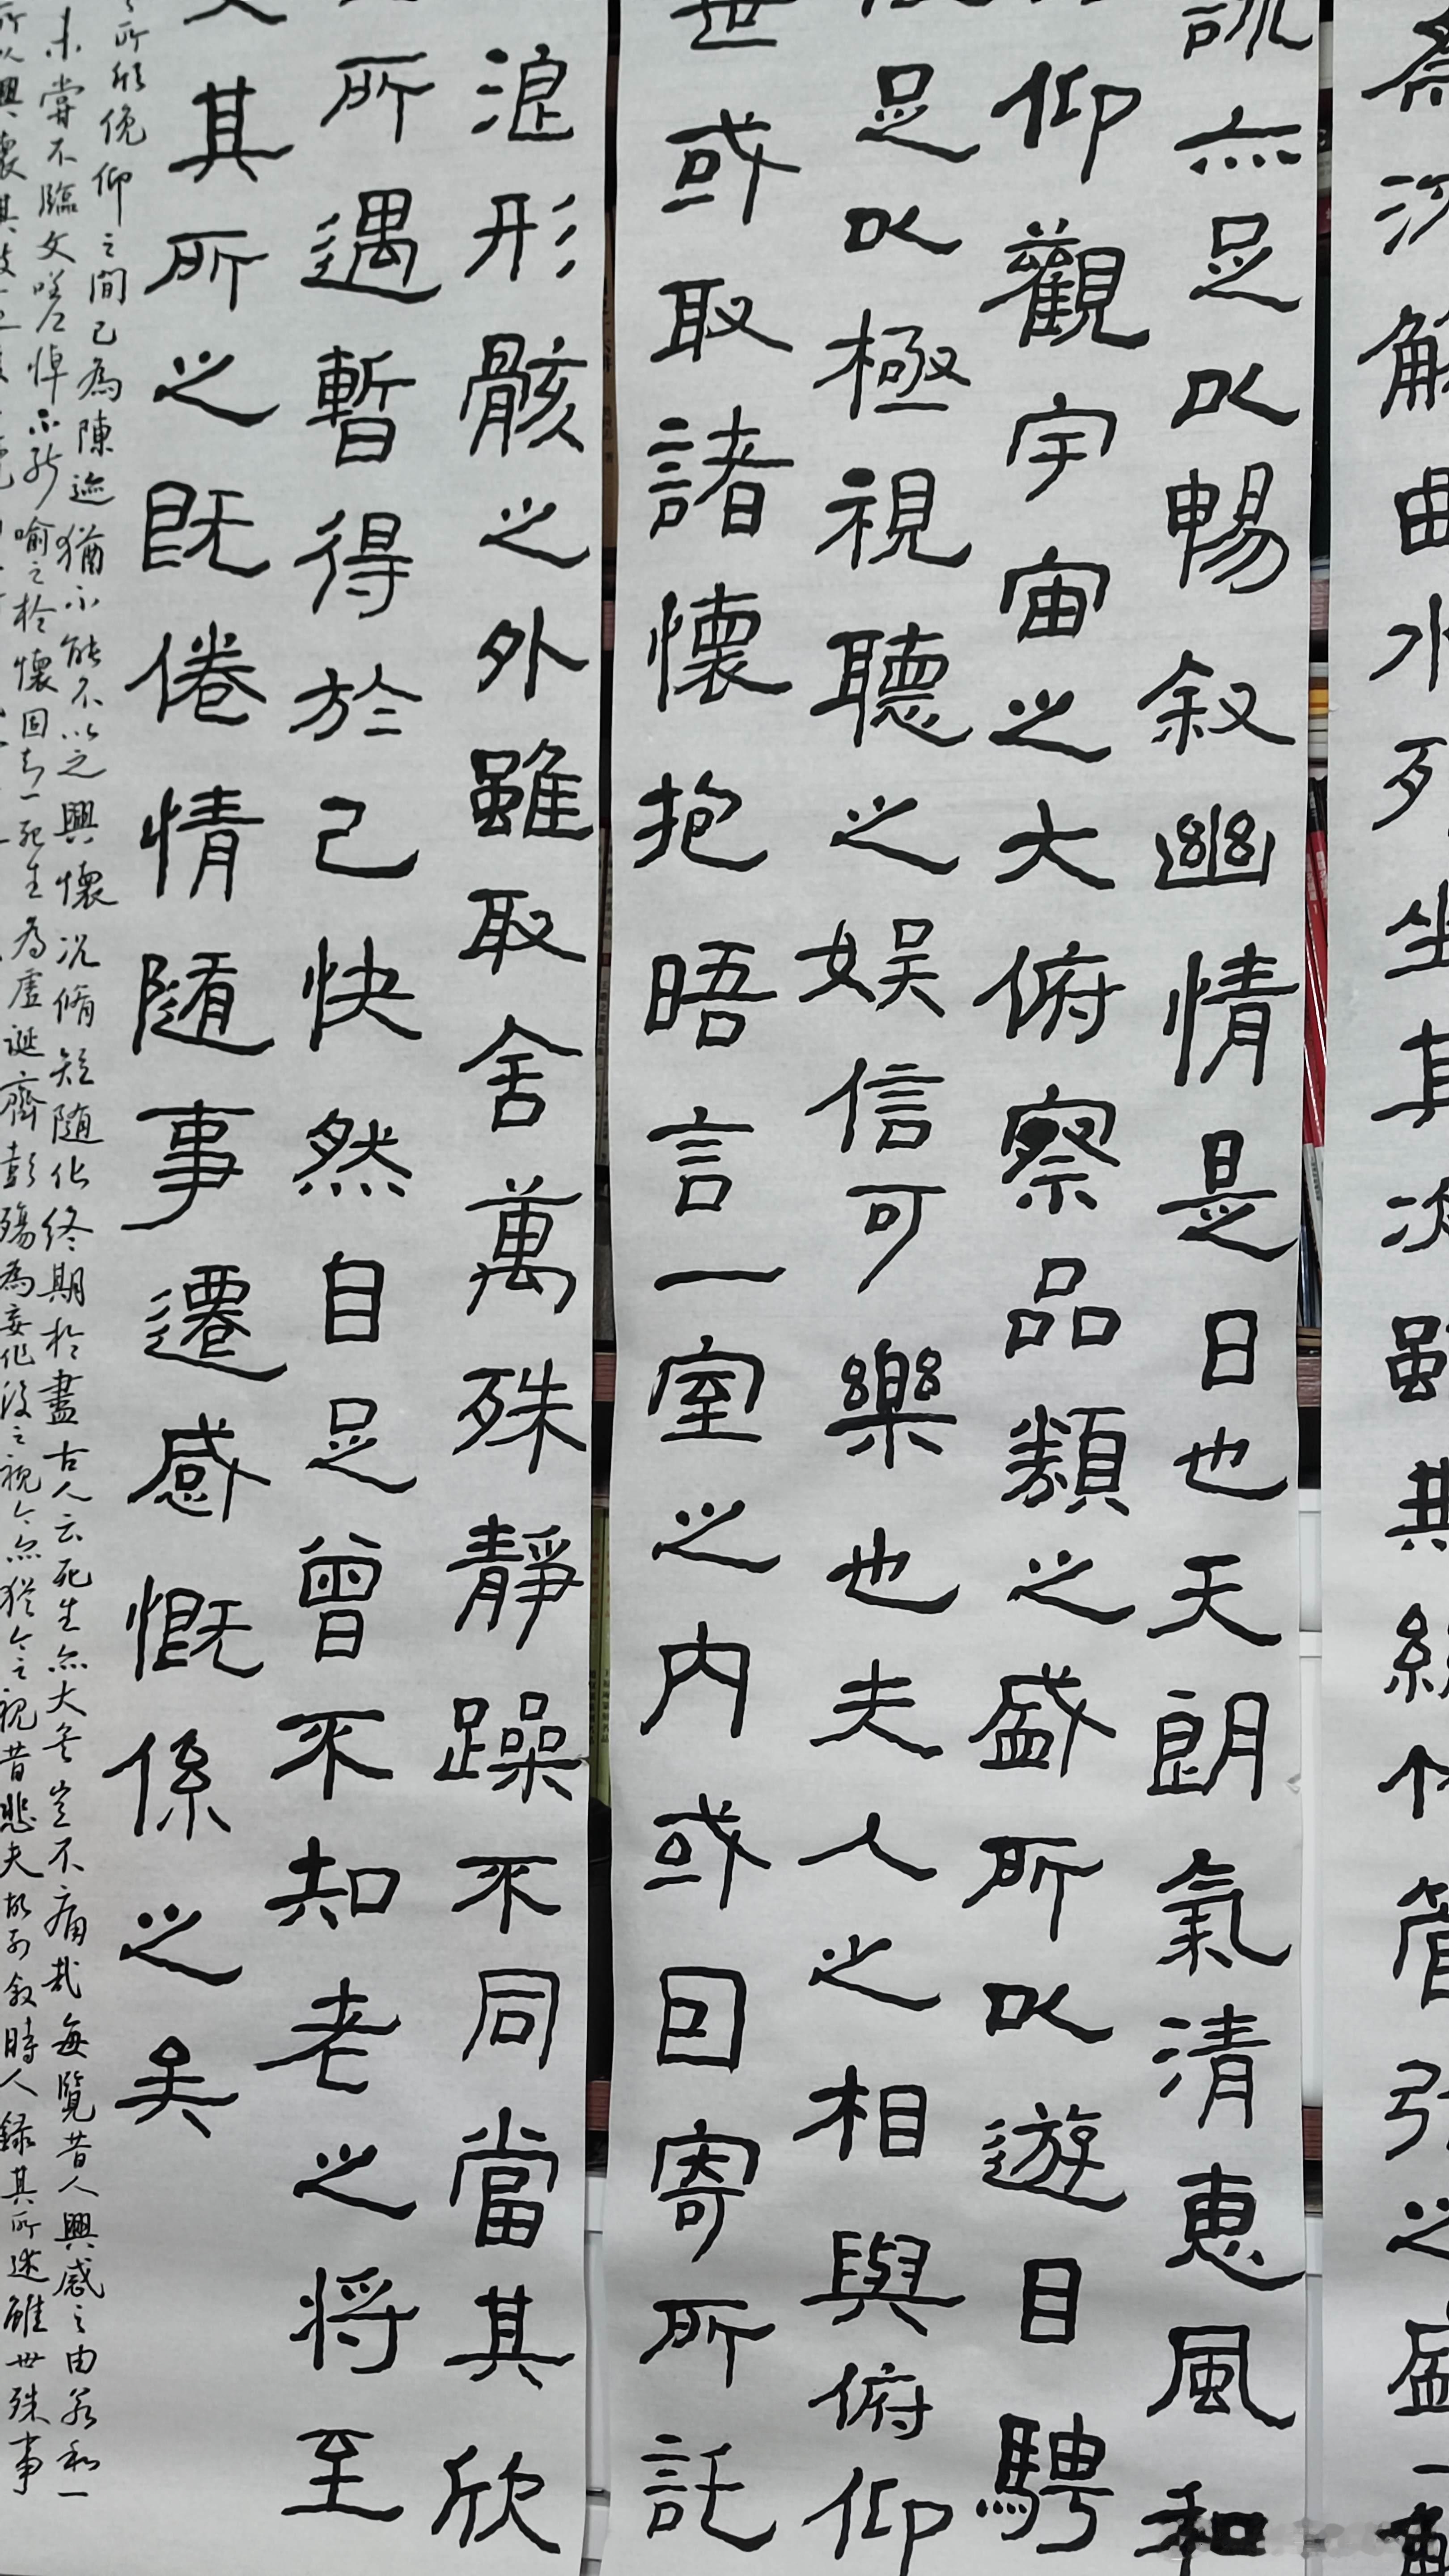 曲水列坐其次雖無絲竹管弦之盛一觴
詠亦足以暢叙幽情是日也天朗氣清惠風和
仰觀宇宙之大俯察品類之盛所以遊目騁
足以極視聽之娛信可樂也夫人之相與俯仰
世或取諸懷抱晤言一室之内或因寄所託
浪形骸之外雖取舍萬殊静躁不同當其欣
所遇暫得於己快然自足曾不知老之将至
其所之既倦情随事遷感慨係之矣
所欣俛仰之間已為陳迹猶不能不以之興懷况脩短随化終期於盡古人云死生亦大矣豈不痛哉每覽昔人興感之由若合一
未嘗不臨文嗟悼不能喻之於懷固知一死生為虛誕齊彭殤為妄作後之視今亦猶今之視昔悲夫故列叙時人録其所述雖世殊事
所以興懷其致